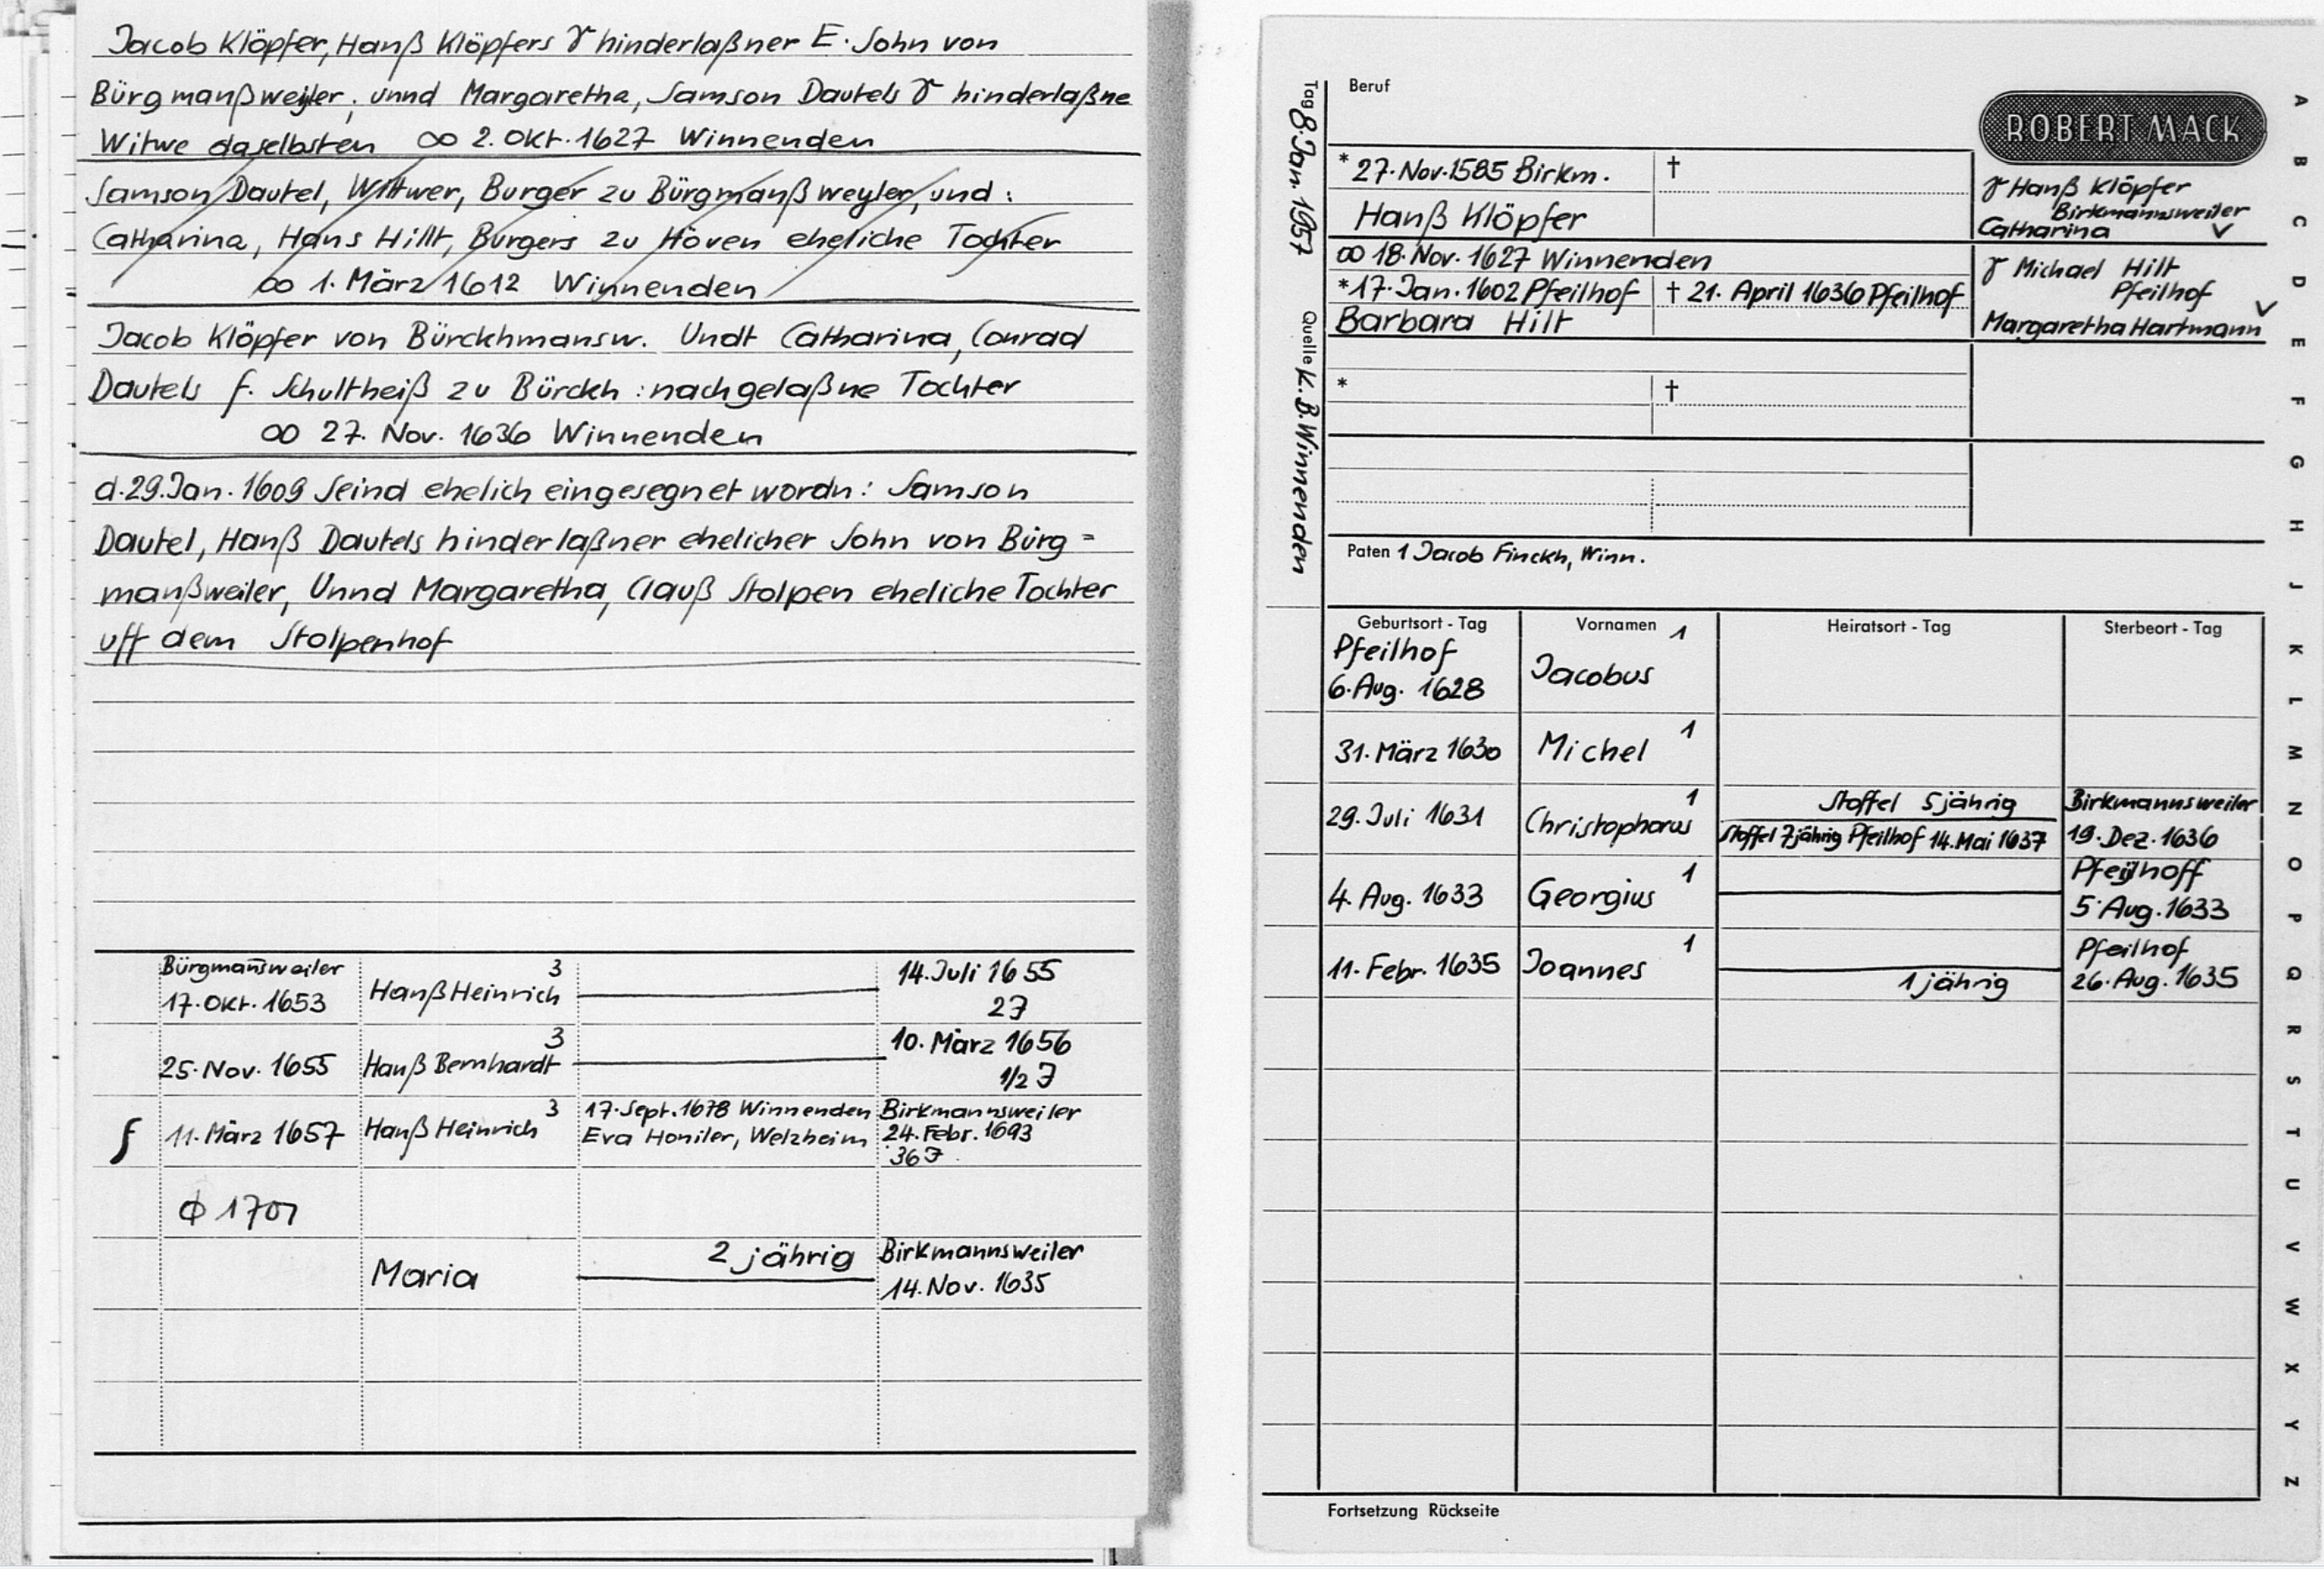 Jacob Klöpfer, Hanß Klöpfers ɤ hinderlaßner E. Sohn von
Bürgmanßweyler, unnd Margaretha, Samson Dautels ɤ hinderlaßne
Witwe daselbsten ∞ 2. Okt. 1627 Winnenden
Samson Dautel, Wittwer, Burger zu Bürgmanßweyler, und:
Catharina, Hans Hillt, Burgers zu Höven eheliche Tochter
∞ 1. März 1612 Winnenden
Jacob Klöpfer von Bürckhmansw. Undt Catharina, Conrad
Dautels f. Schultheiß zu Bürckh: nachgelaßne Tochter
∞ 27. Nov. 1636 Winnenden
d. 29. Jan. 1609 Seind ehelich eingesegnet wordn: Samson
Dautel, Hanß Dautels hinderlaßner ehelicher Sohn von Bürg=
manßweiler, Unnd Margaretha, Clauß Stolpen eheliche Tochter
uff dem Stolpenhof
Bürgmañsweiler
17. Okt. 1653 Hanß Heinrich 3 14. Juli 1655
2 J
25. Nov. 1655 Hanß Bernhardt 3 10. März 1656
1/2 J
f 11. März 1657 Hanß Heinrich 3 17. Sept. 1678 Winnenden Birkmannsweiler
Eva Honiler, Welzheim 24. Febr. 1693
36 J
ф 1701
Maria 2 jährig Birkmannsweiler
14. Nov. 1635
Tag 8. Jan. 1957 Quelle K. B. Winnenden
Beruf
ROBERT MACK
* 27. Nov. 1585 Birkm. †
Hanß Klöpfer
ɤ Hanß Klöpfer
Birkmannsweiler
Catharina ✓
∞ 18. Nov. 1627 Winnenden
* 17. Jan. 1602 Pfeilhof † 21. April 1636 Pfeilhof
Barbara Hilt
ɤ Michael Hilt
Pfeilhof
Margaretha Hartmann ✓
* †
Paten 1 Jacob Finckh, Winn.
Geburtsort - Tag Vornamen Heiratsort - Tag Sterbeort - Tag
Pfeilhof
6. Aug. 1628 Jacobus 1
31. März 1630 Michel 1
29. Juli 1631 Christophorus 1 Stoffel 5 jährig Birkmannsweiler
Stoffel 7 jährig Pfeilhof 14. Mai 1637 19. Dez. 1636
4. Aug. 1633 Georgius 1 Pfeylhoff
5. Aug. 1633
11. Febr. 1635 Joannes 1 Pfeilhof
1 jährig 26. Aug. 1635
Fortsetzung Rückseite
A
B
C
D
E
F
G
H
J
K
L
M
N
O
P
Q
R
S
T
U
V
W
X
Y
Z